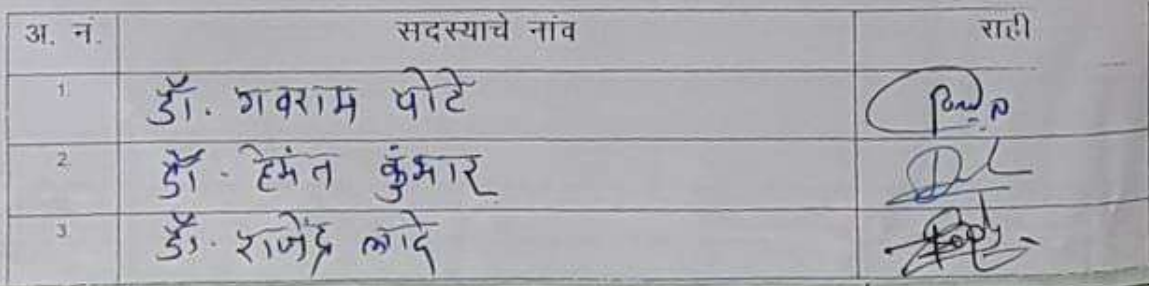 अ. नं. सदस्याचे नांव सही
1. डॉ. गवराम पोटे
2. डॉ. हेमंत कुंभार
3. डॉ. राजेंद्र लादे